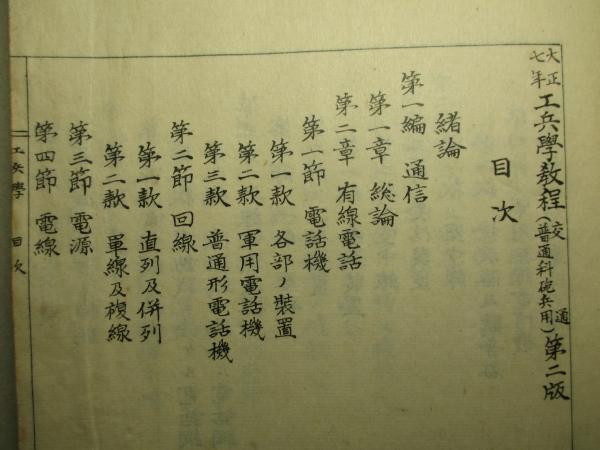 大正七年 工兵學教程(交通)(普通科砲兵用)第二版
目次
緒論
第一編 通信
第一章 総論
第二章 有線電話
第一節 電話機
第一款 各部ノ装置
第二款 軍用電話機
第三款 普通形電話機
第二節 回線
第一款 直列及併列
第二款 單線及複線
第三節 電源
第四節 電線
工兵學 目次